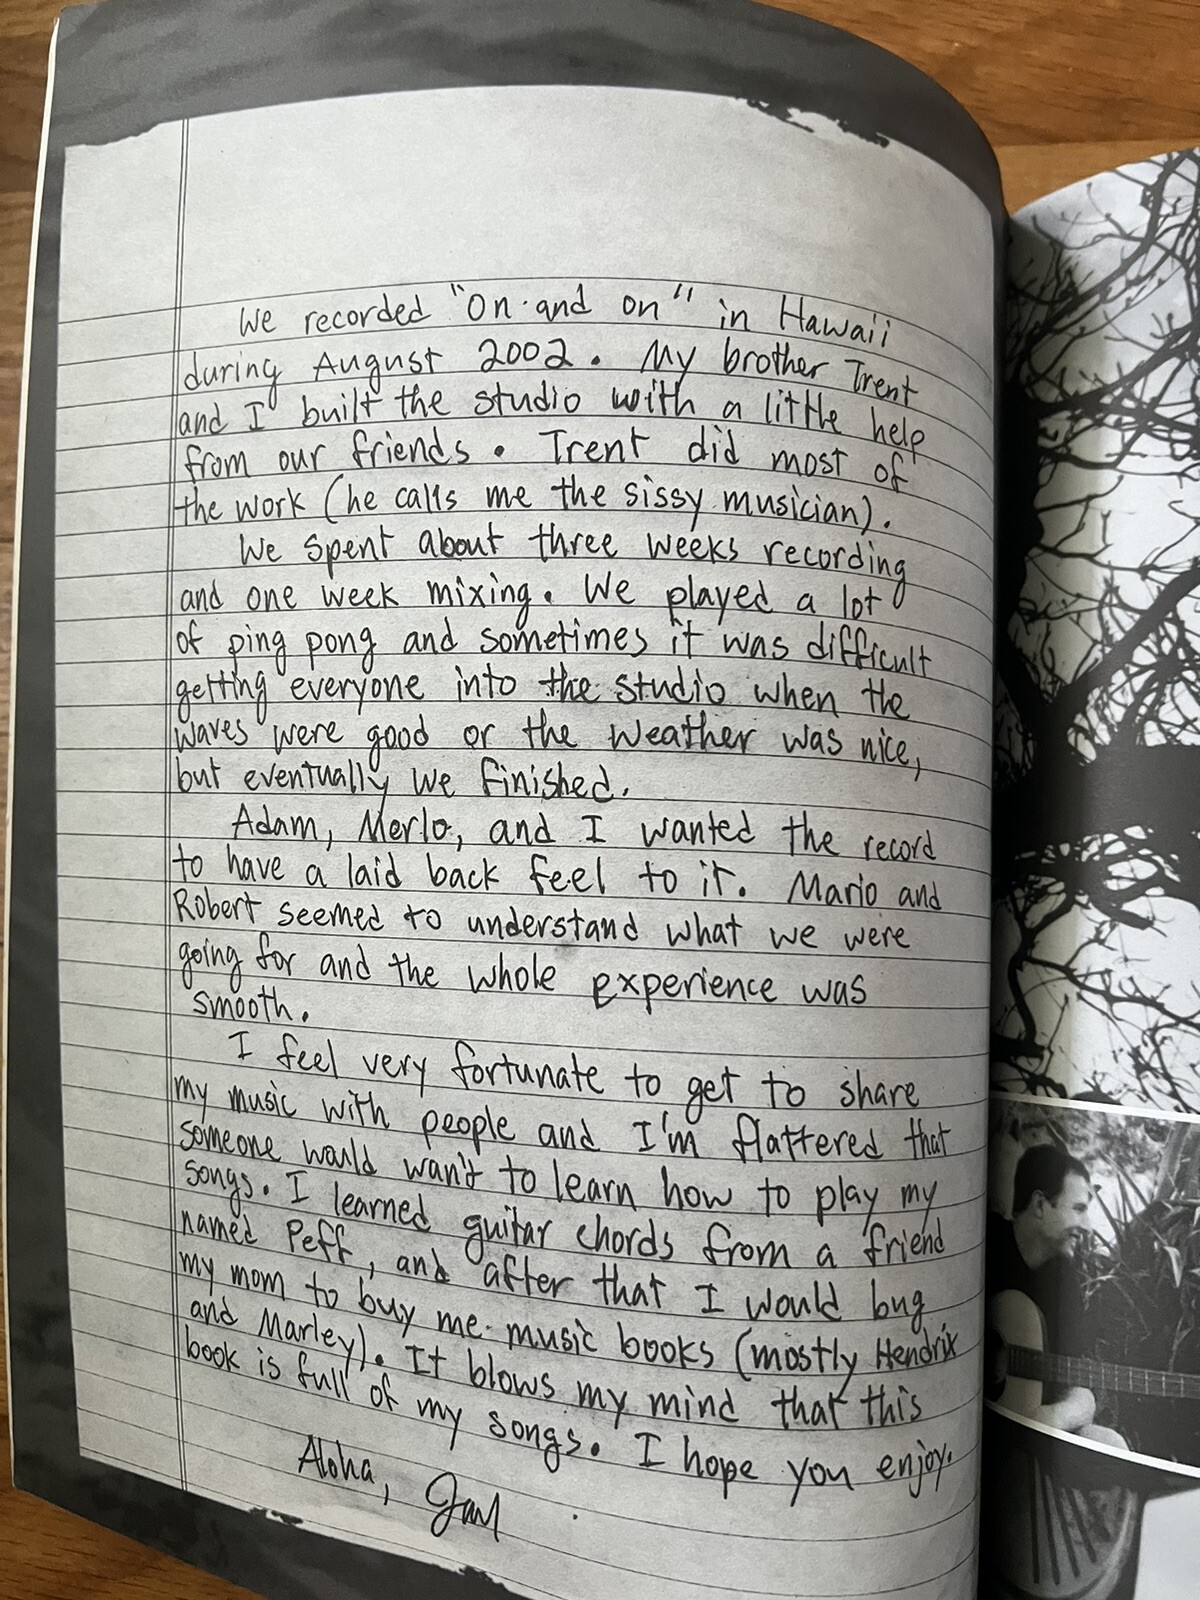 We recorded "On and on" in Hawaii
during August 2002. My brother Trent
and I built the studio with a little help
from our friends. Trent did most of
the work (he calls me the sissy musician).
We spent about three weeks recording
and one week mixing. We played a lot
of ping pong and sometimes it was difficult
getting everyone into the studio when the
waves were good or the weather was nice,
but eventually we finished.
Adam, Merlo, and I wanted the record
to have a laid back feel to it. Mario and
Robert seemed to understand what we were
going for and the whole experience was
smooth.
I feel very fortunate to get to share
my music with people and I'm flattered that
someone would wan't to learn how to play my
songs. I learned guitar chords from a friend
named Peff, and after that I would bug
my mom to buy me music books (mostly Hendrix
and Marley). It blows my mind that this
book is full of my songs. I hope you enjoy.
Aloha,